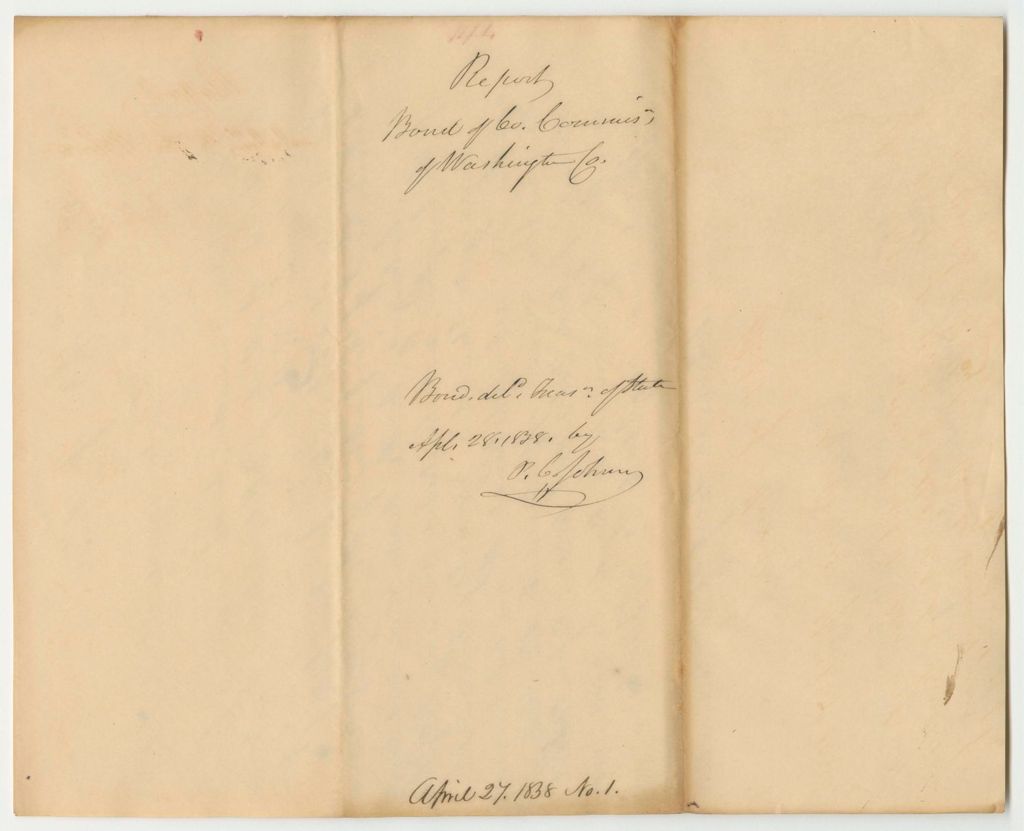 Report
Bond of Co. Commis.rs
of Washington Co.
Bond. del.d Treas.r of State
Apl. 28. 1838. by
P. C. Johnson
April 27. 1838 No. 1.